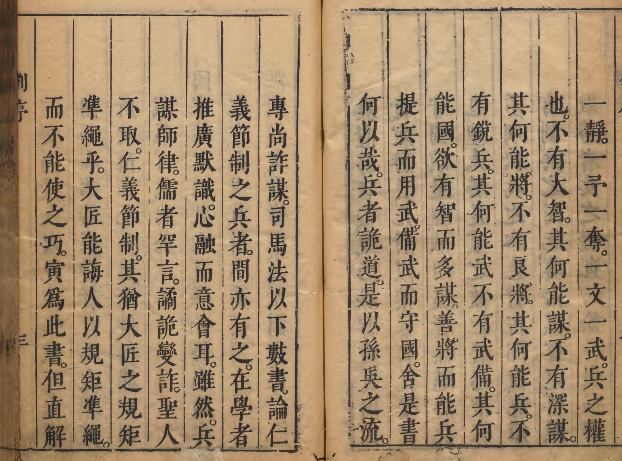 一靜。一予一奪。一文一武。兵之權
也。不有大智。其何能謀。不有深謀。
其何能將。不有良將。其何能兵。不
有銳兵。其何能武不有武備。其何
能國。欲有智而多謀。善將而能兵
提兵而用武。備武而守國。舍是書
何以哉。兵者詭道。是以孫吳之流。
專尚詐謀。司馬法以下數書。論仁
義節制之兵者。間亦有之。在學者
推廣默識。心融而意會耳。雖然。兵
謀師律。儒者罕言。譎詭變詐。聖人
不取。仁義節制。其猶大匠之規矩
凖繩乎。大匠能誨人以規矩凖繩。
而不能使之巧。寅爲此書。但直解
劉序
三